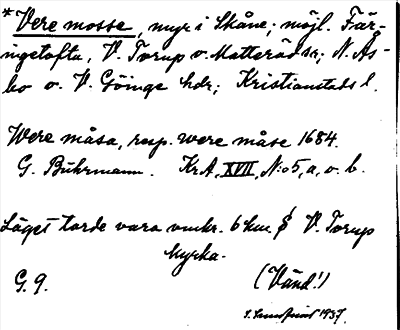 *Vere mosse, myr i Skåne; möjl. Fär-
ingetofta, V. Torup o. Matteröds sr; N. Ås-
bo o. V. Göinge hdr; Kristianstads l.
Were måsa, resp. were måse 1684.
G. Buhrmann. KrA, XVII, N:o 5, a, o. b.
Läget torde vara omkr. 6 km S V. Torup
kyrka.
G. 9. (Vänd!)
1937.